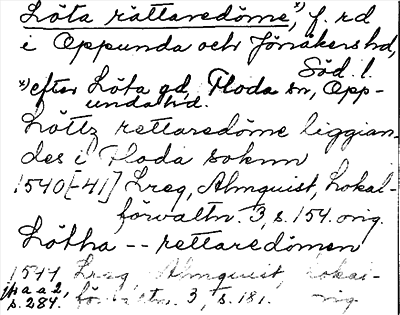 Löta rättaredöme,*) f. rd
i Oppunda och Jönåkers hd,
Söd. l.
*) efter Löta gd, Floda sn, Opp-
unda hd.
Löttz rettaredöme liggian-
des i Floda soknn
1540[-41] Lreg, Almquist, Lokal-
förvaltn. 3, s. 154. orig.
Lötha -- rettaredömen
1544 Lreg, Almquist, Lokal-
a a 2, förvaltn. 3, s. 181. orig.
s. 284.